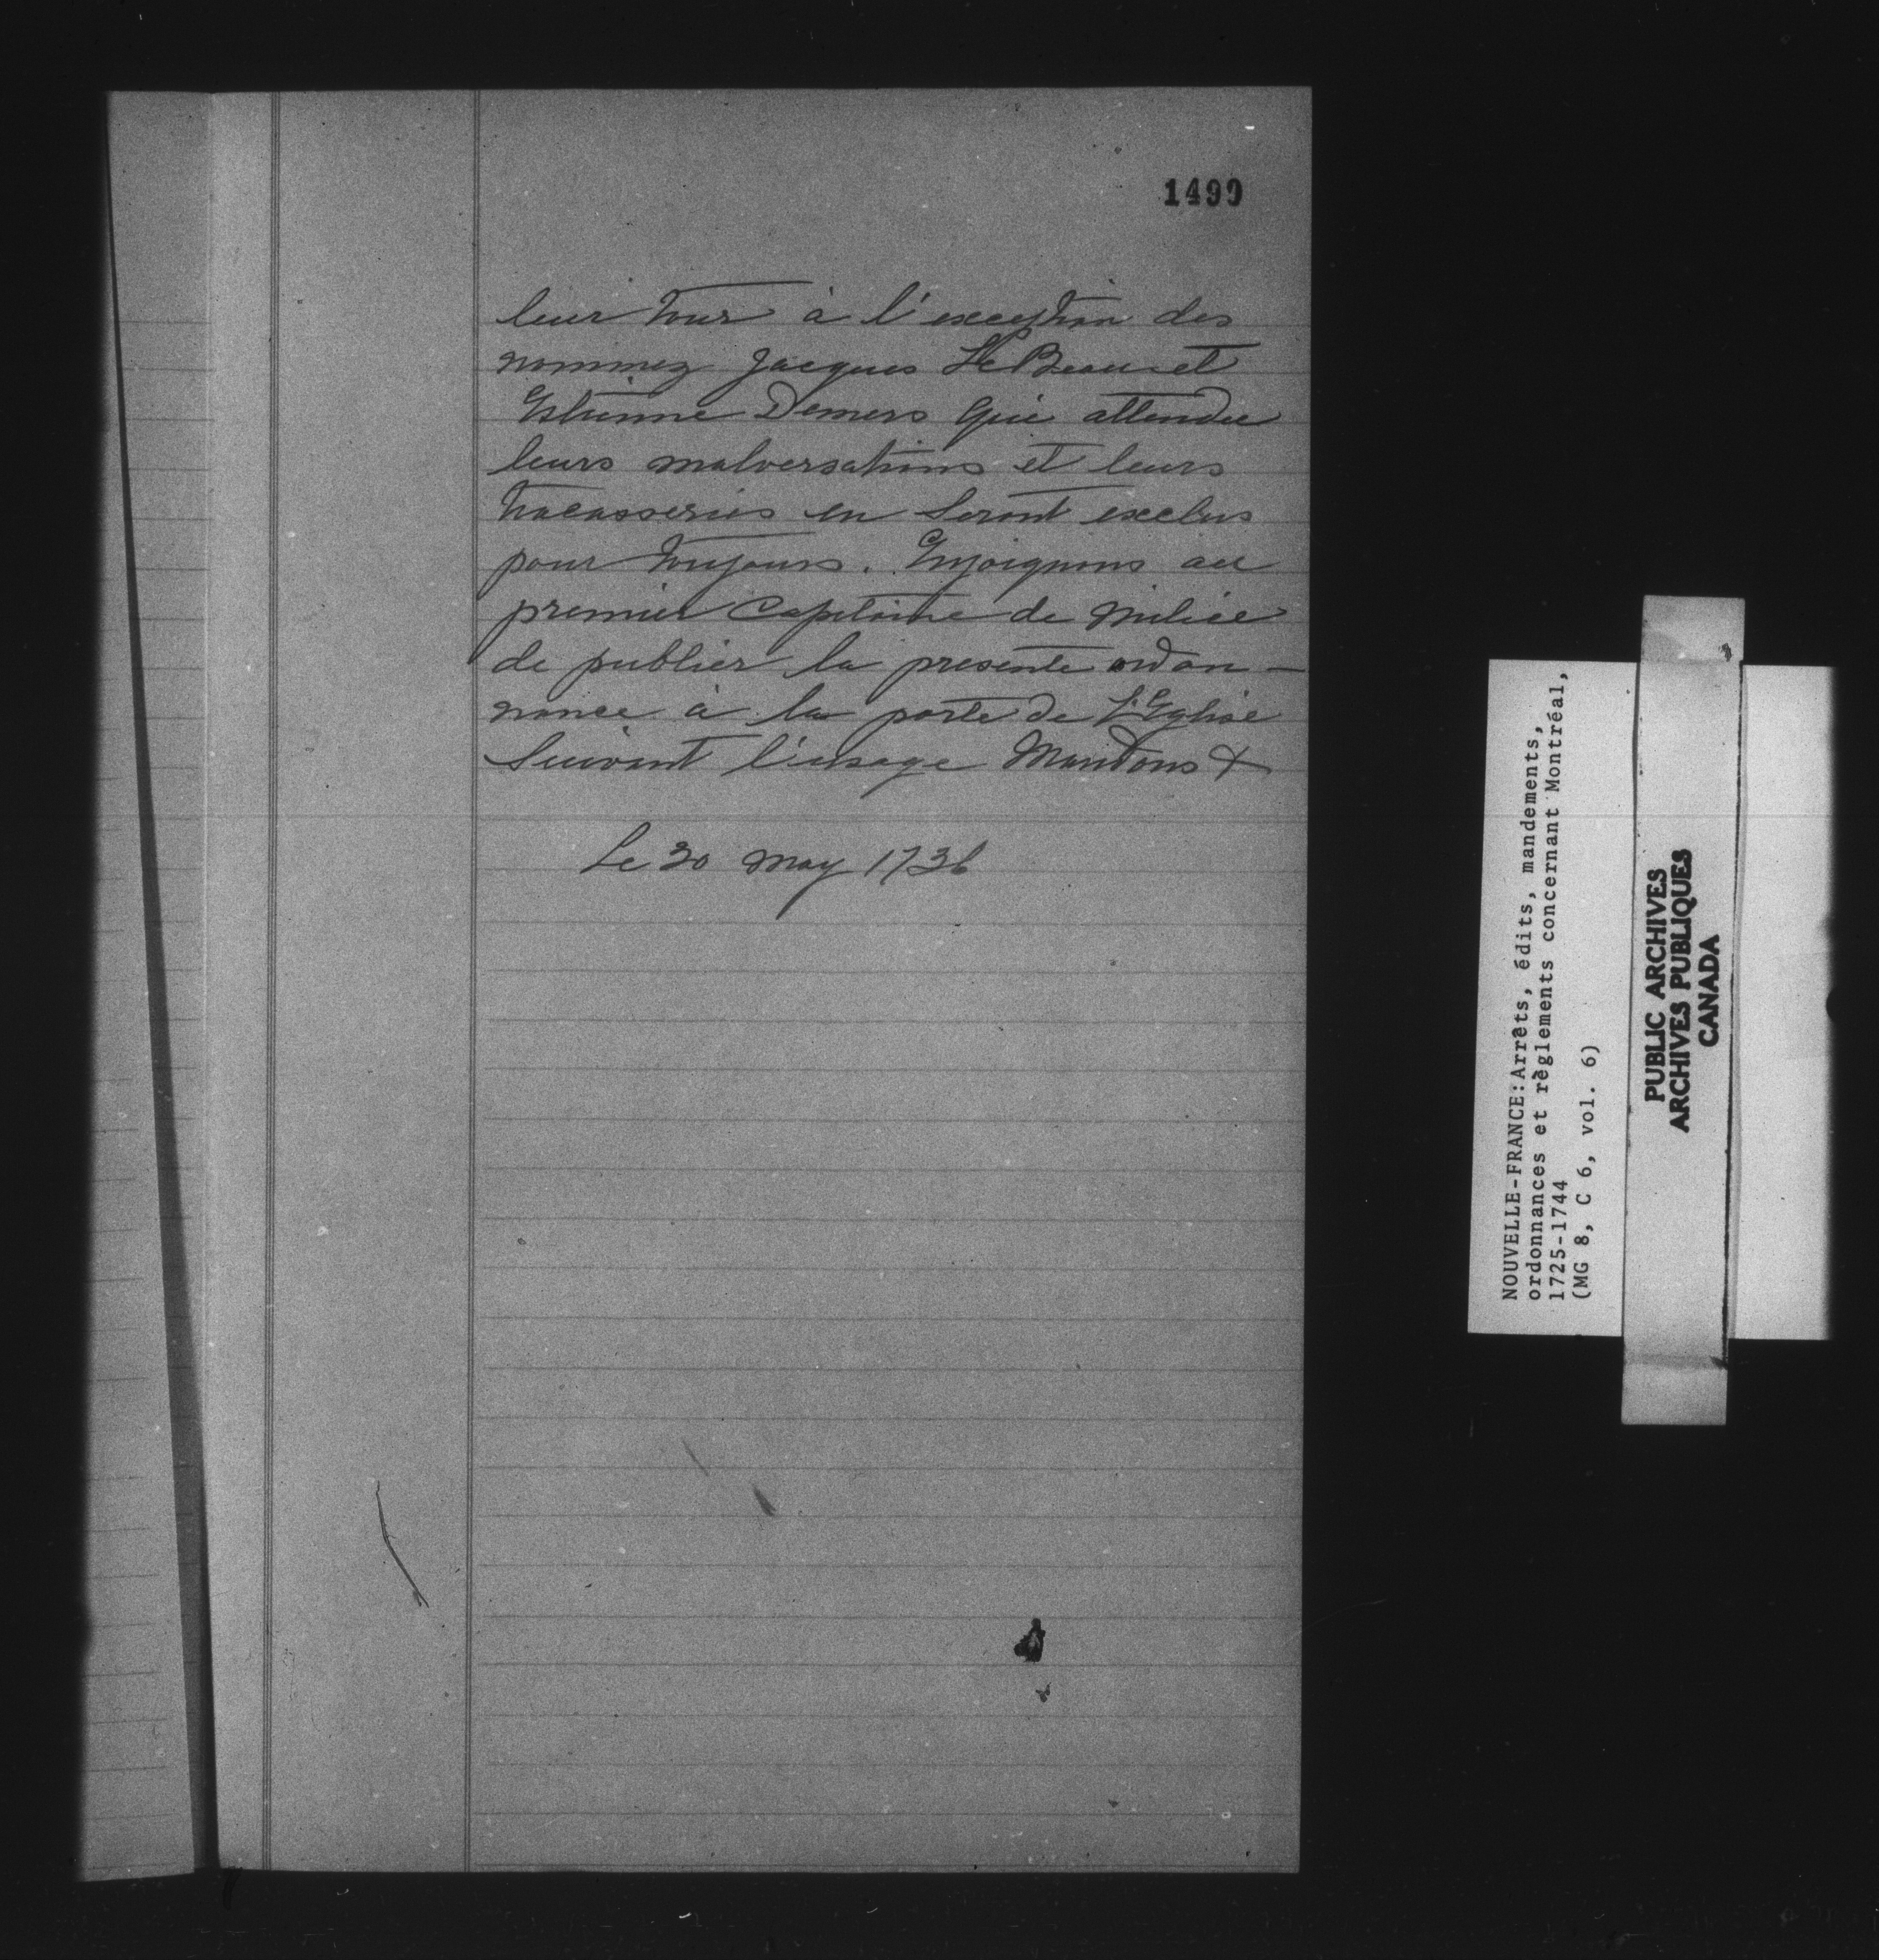 1499
leur tour à l'exception des
nommez Jacques Le Beau et
Estienne Demers Qui attendu
leurs malversations et leurs
tracasseries en seront exclus
pour toujours. Enjoignons au
premier Capitaine de milice
de publier la presente ordon-
nance à la porte de L'Eglise
Suivant l'usage Mandons &
Le 30 may 1736
NOUVELLE-FRANCE:Arrêts, édits, mandements,
ordonnances et règlements concernant Montréal,
1725-1744
(MG 8, C 6, vol. 6)
PUBLIC ARCHIVES
ARCHIVES PUBLIQUES
CANADA